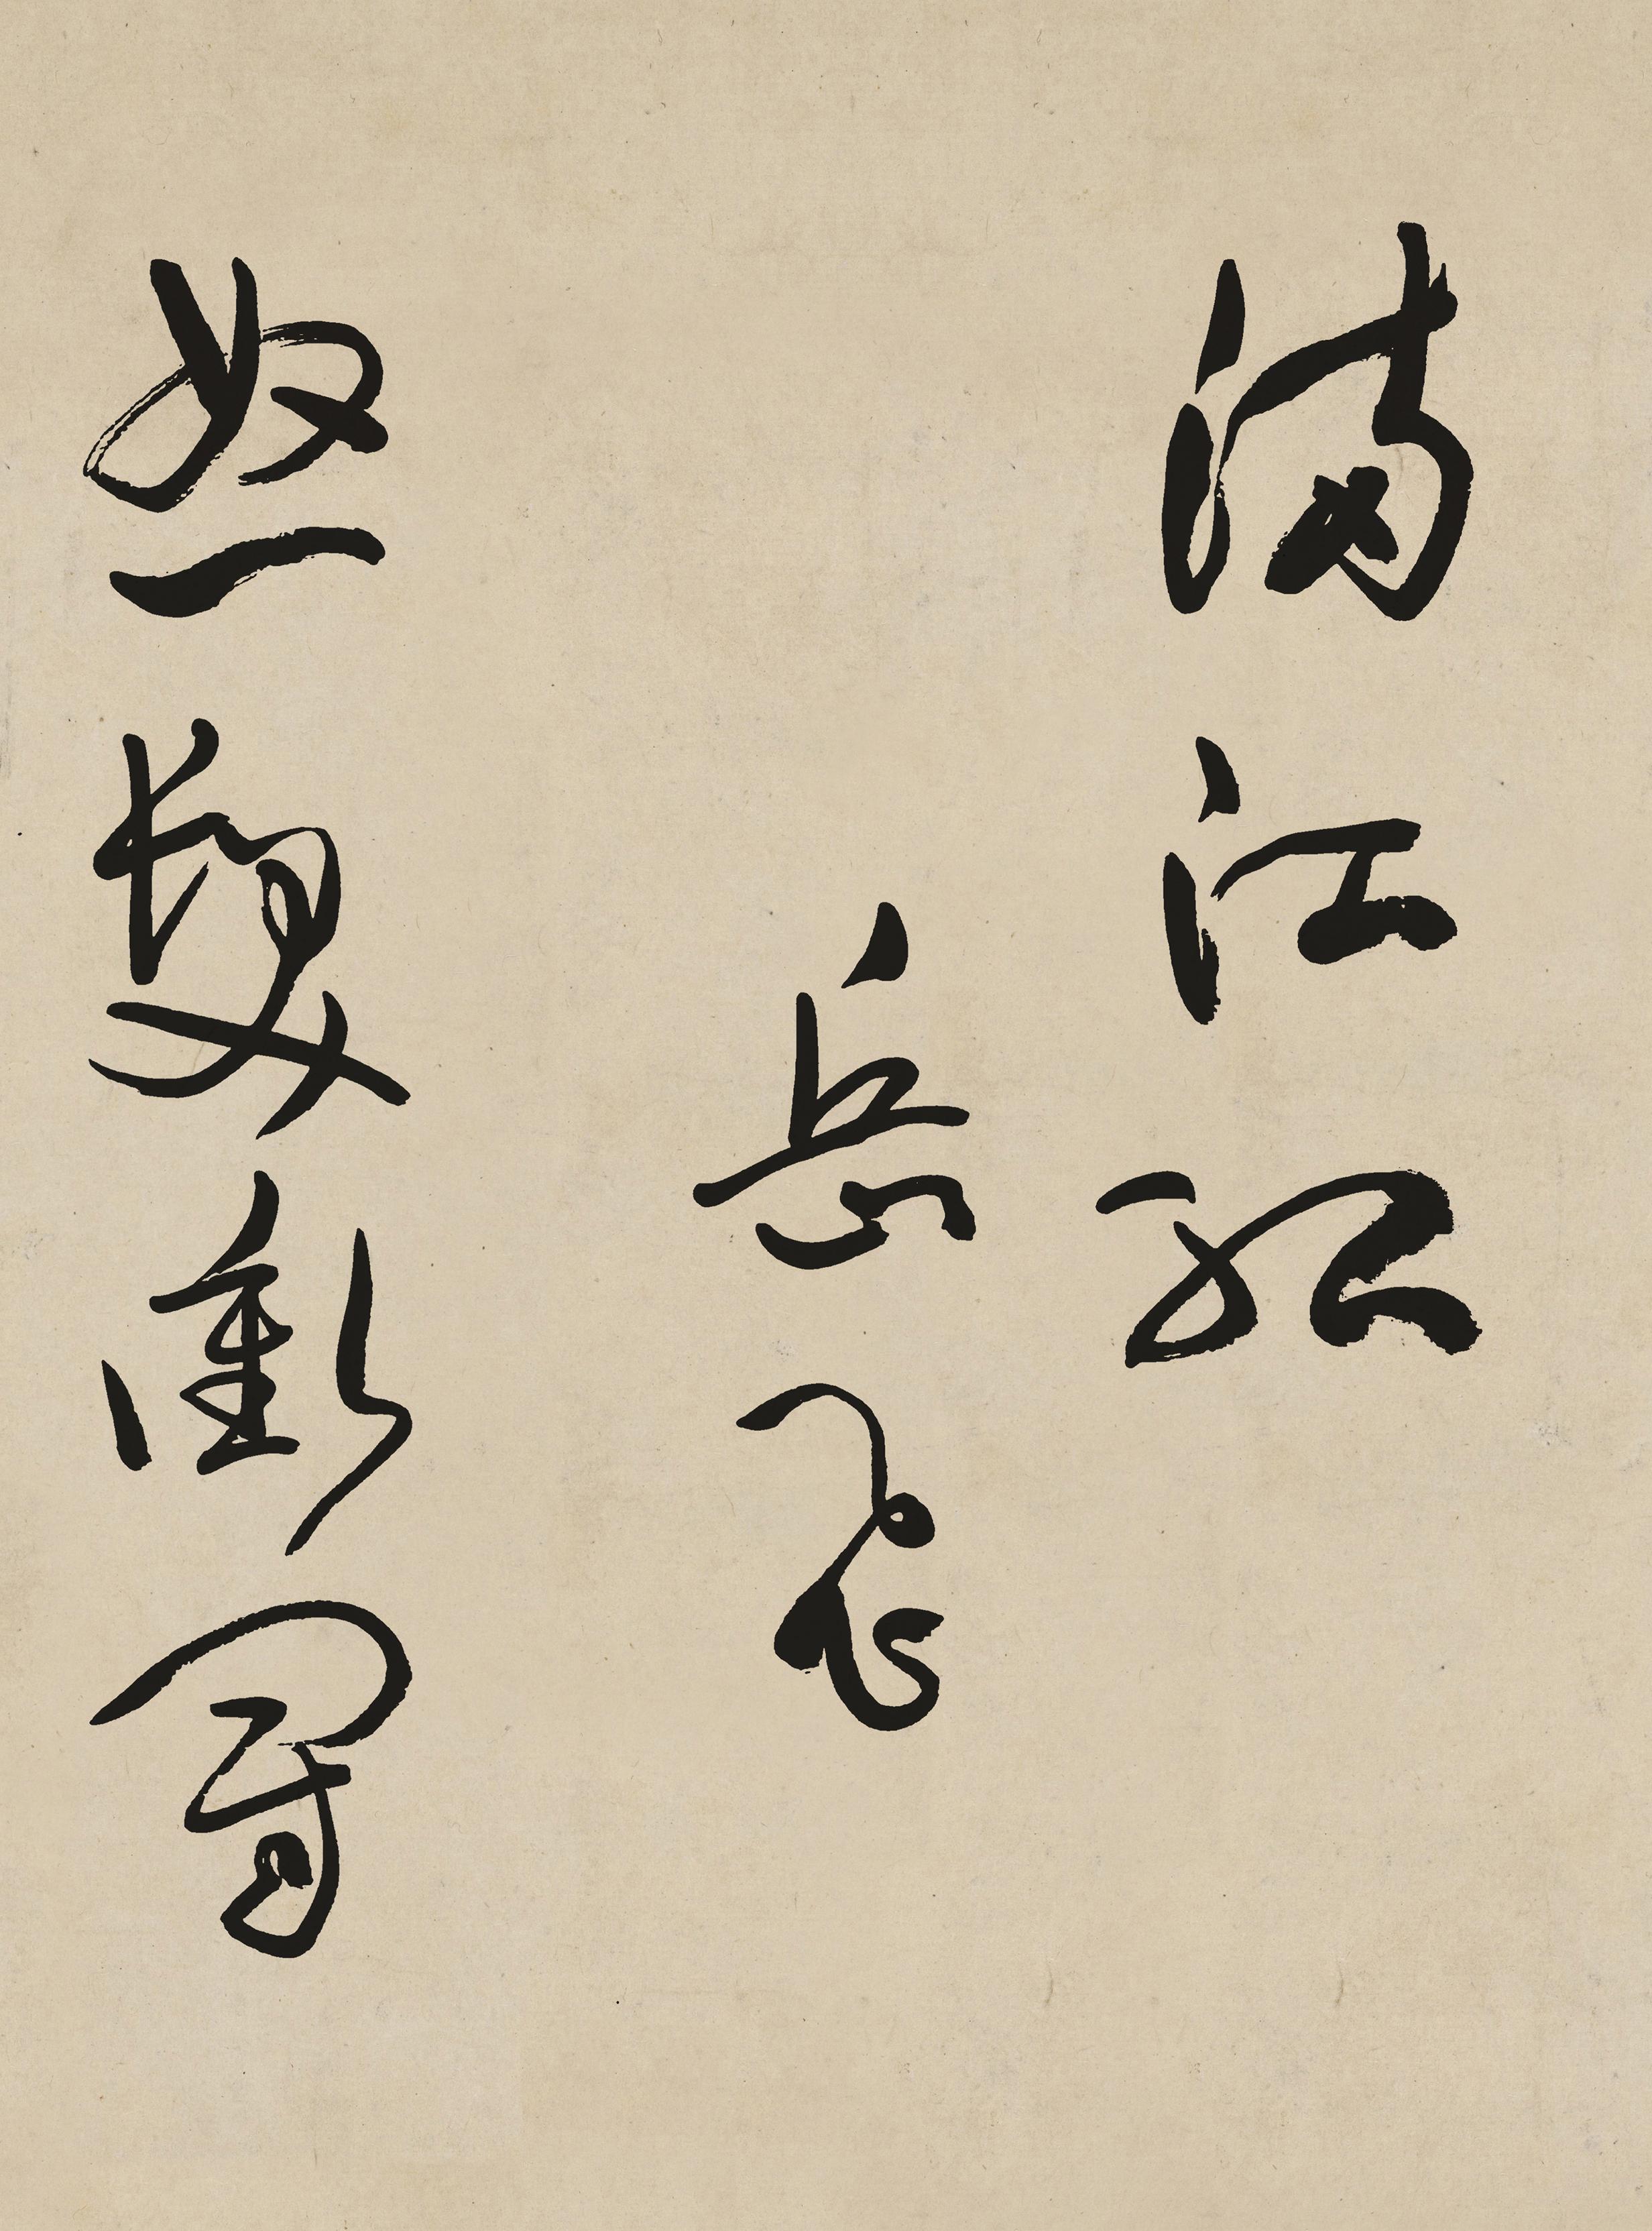 滿江紅
岳飛
怒髮衝冠